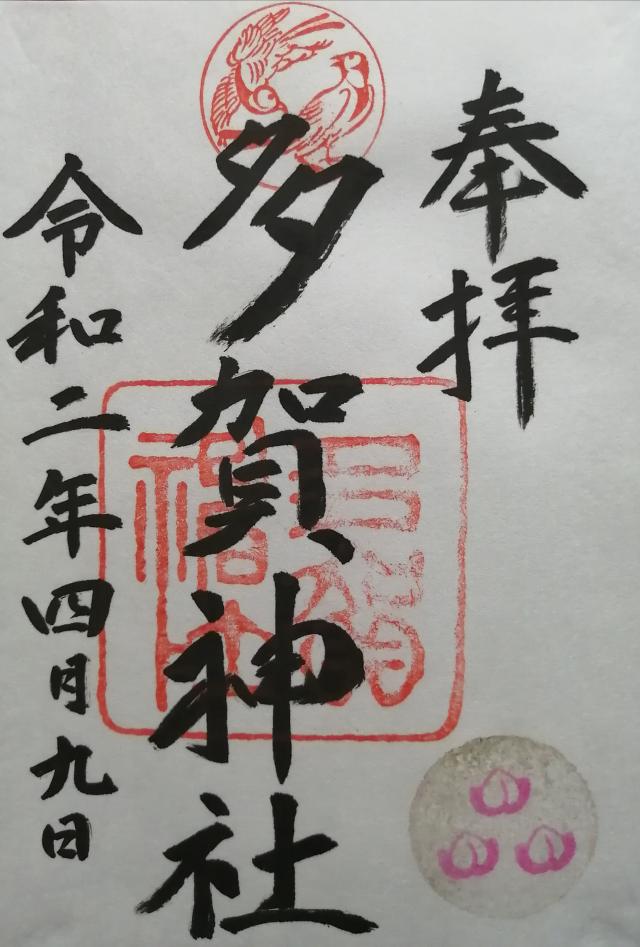 奉拝
多賀神社
令和二年四月九日